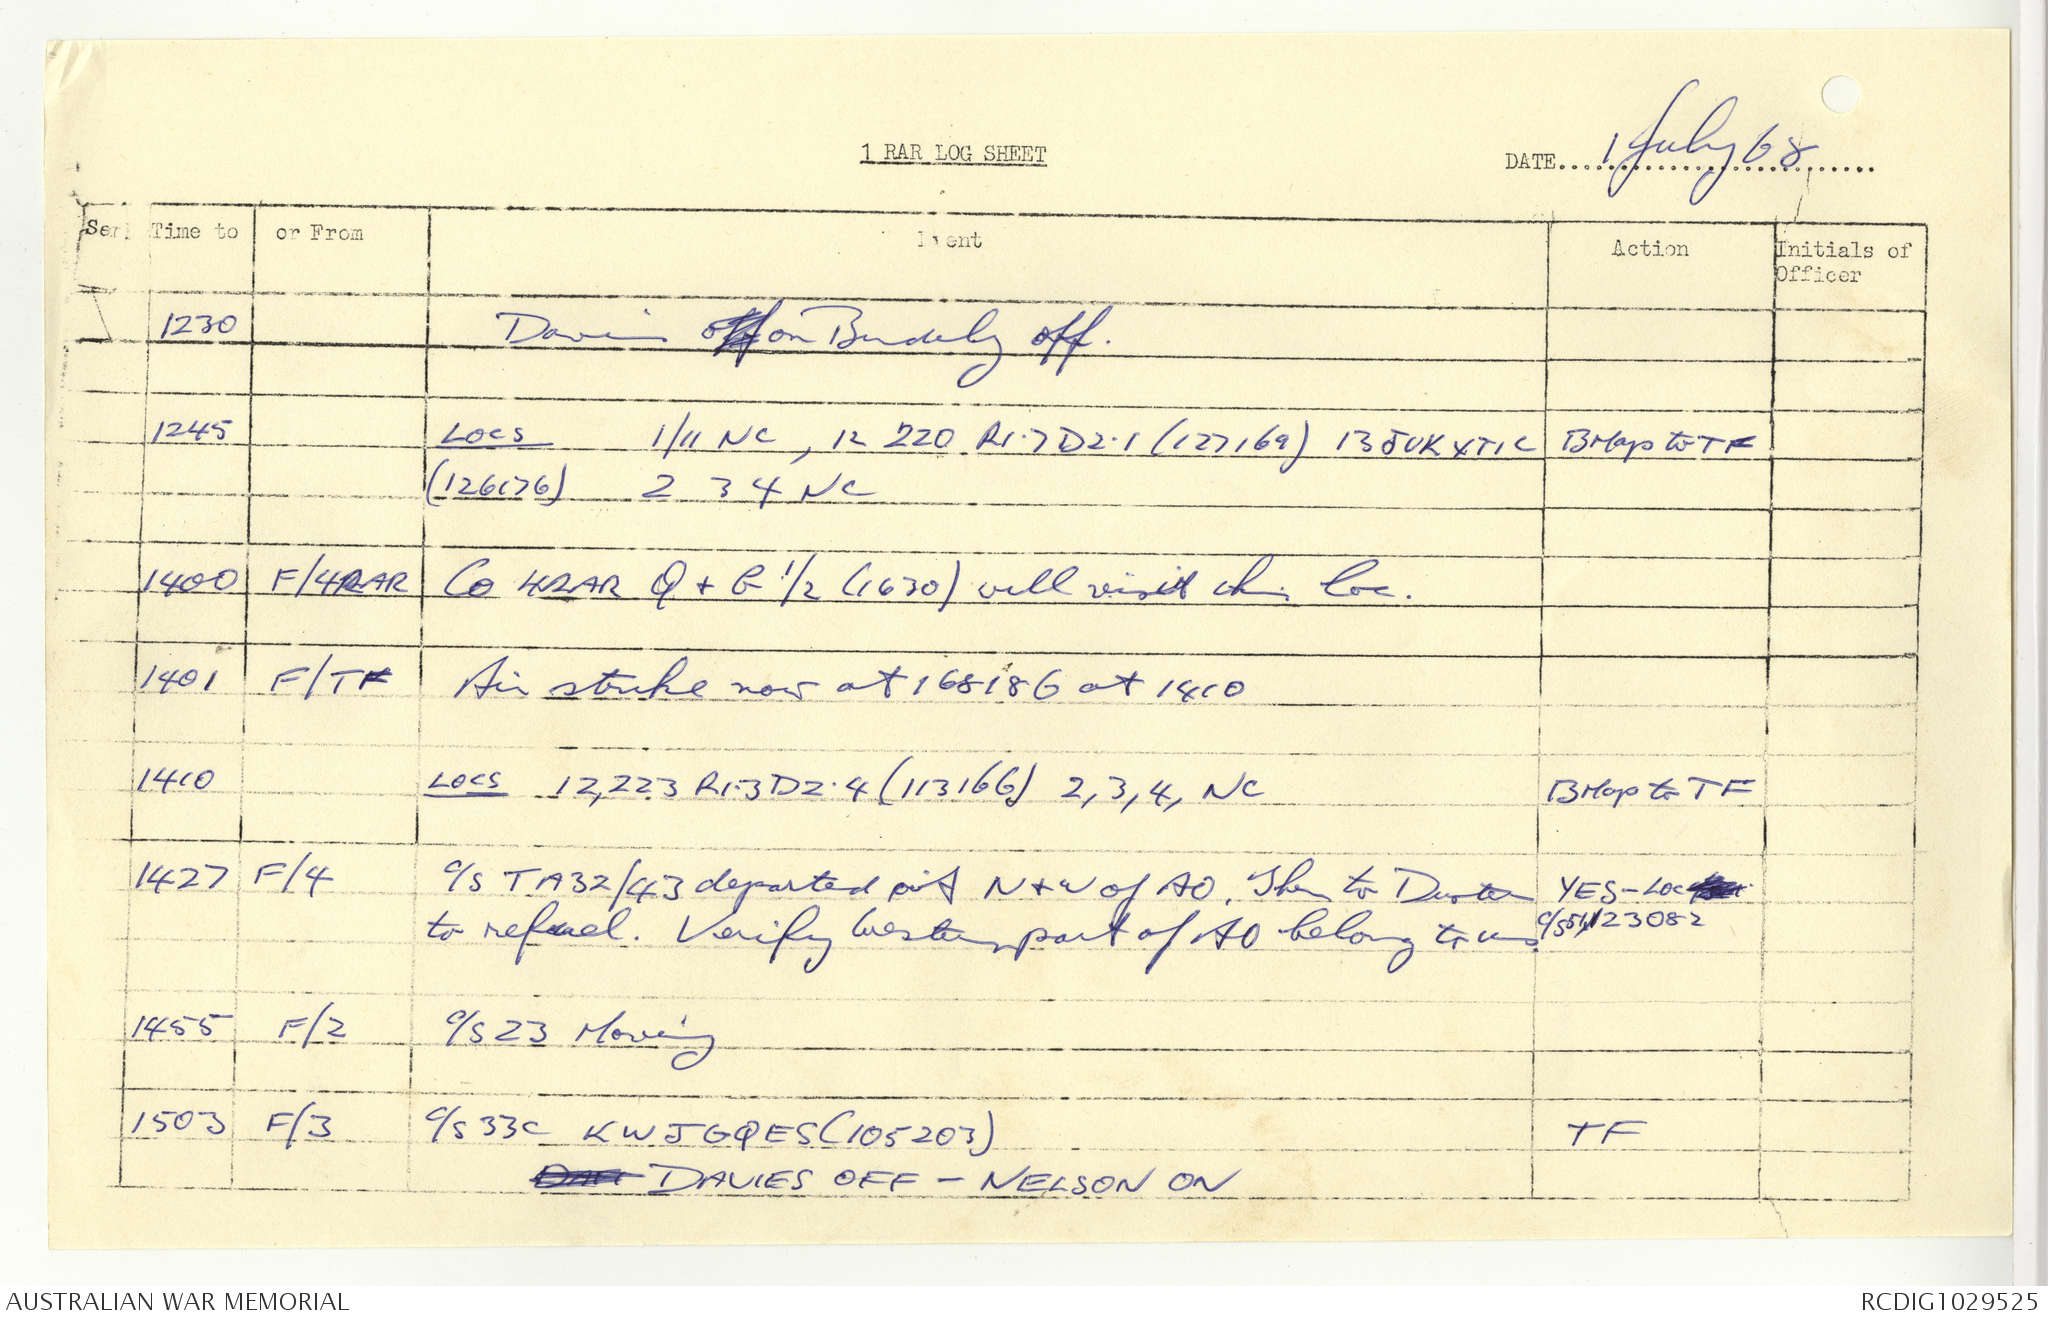 1 RAR LOG SHEET
DATE 1 July 68
Ser Time to or From Event Action Initials of
Officer
1230 Davies on off.
1245 LOCS 1/11 NC, 12 220 R1.7 D2.1 (127169) 13 JUKXTIC BMap to TF
(126176) 2 3 4 NC
1400 F/4RAR Co 4RAR Q + G 1/2 (1630) will visit this loc.
1401 F/TF Air strike now at 168186 at 1410
1410 LOCS 12,223 R1.3 D2.4 (113166) 2,3,4, NC BMap to TF
1427 F/4 c/s TA32/43 departed N+W of AO. Then to Duster YES-LOC
to refuel. Verify western part of AO belong to us c/s 123082
1455 F/2 c/s 23 Moving
1503 F/3 c/s 33C KWJGQES (105203) TF
DAVIES OFF - NELSON ON
AUSTRALIAN WAR MEMORIAL RCDIG1029525